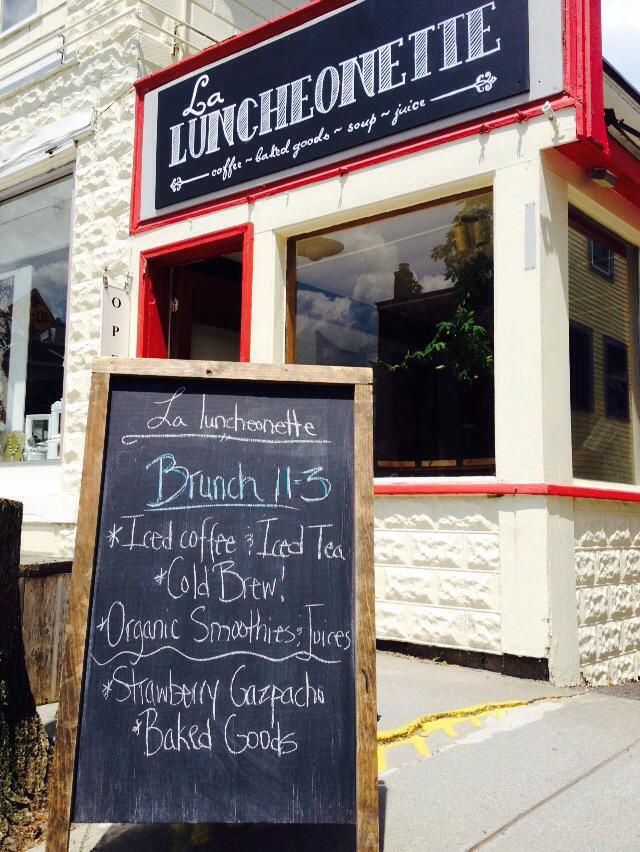 La
LUNCHEONETTE
coffee ~ baked goods ~ soup ~ juice
OPE
La luncheonette
Brunch 11-3
*Iced coffee & Iced Tea
*Cold Brew!
*Organic Smoothies & Juices
*Strawberry Gazpacho
*Baked Goods